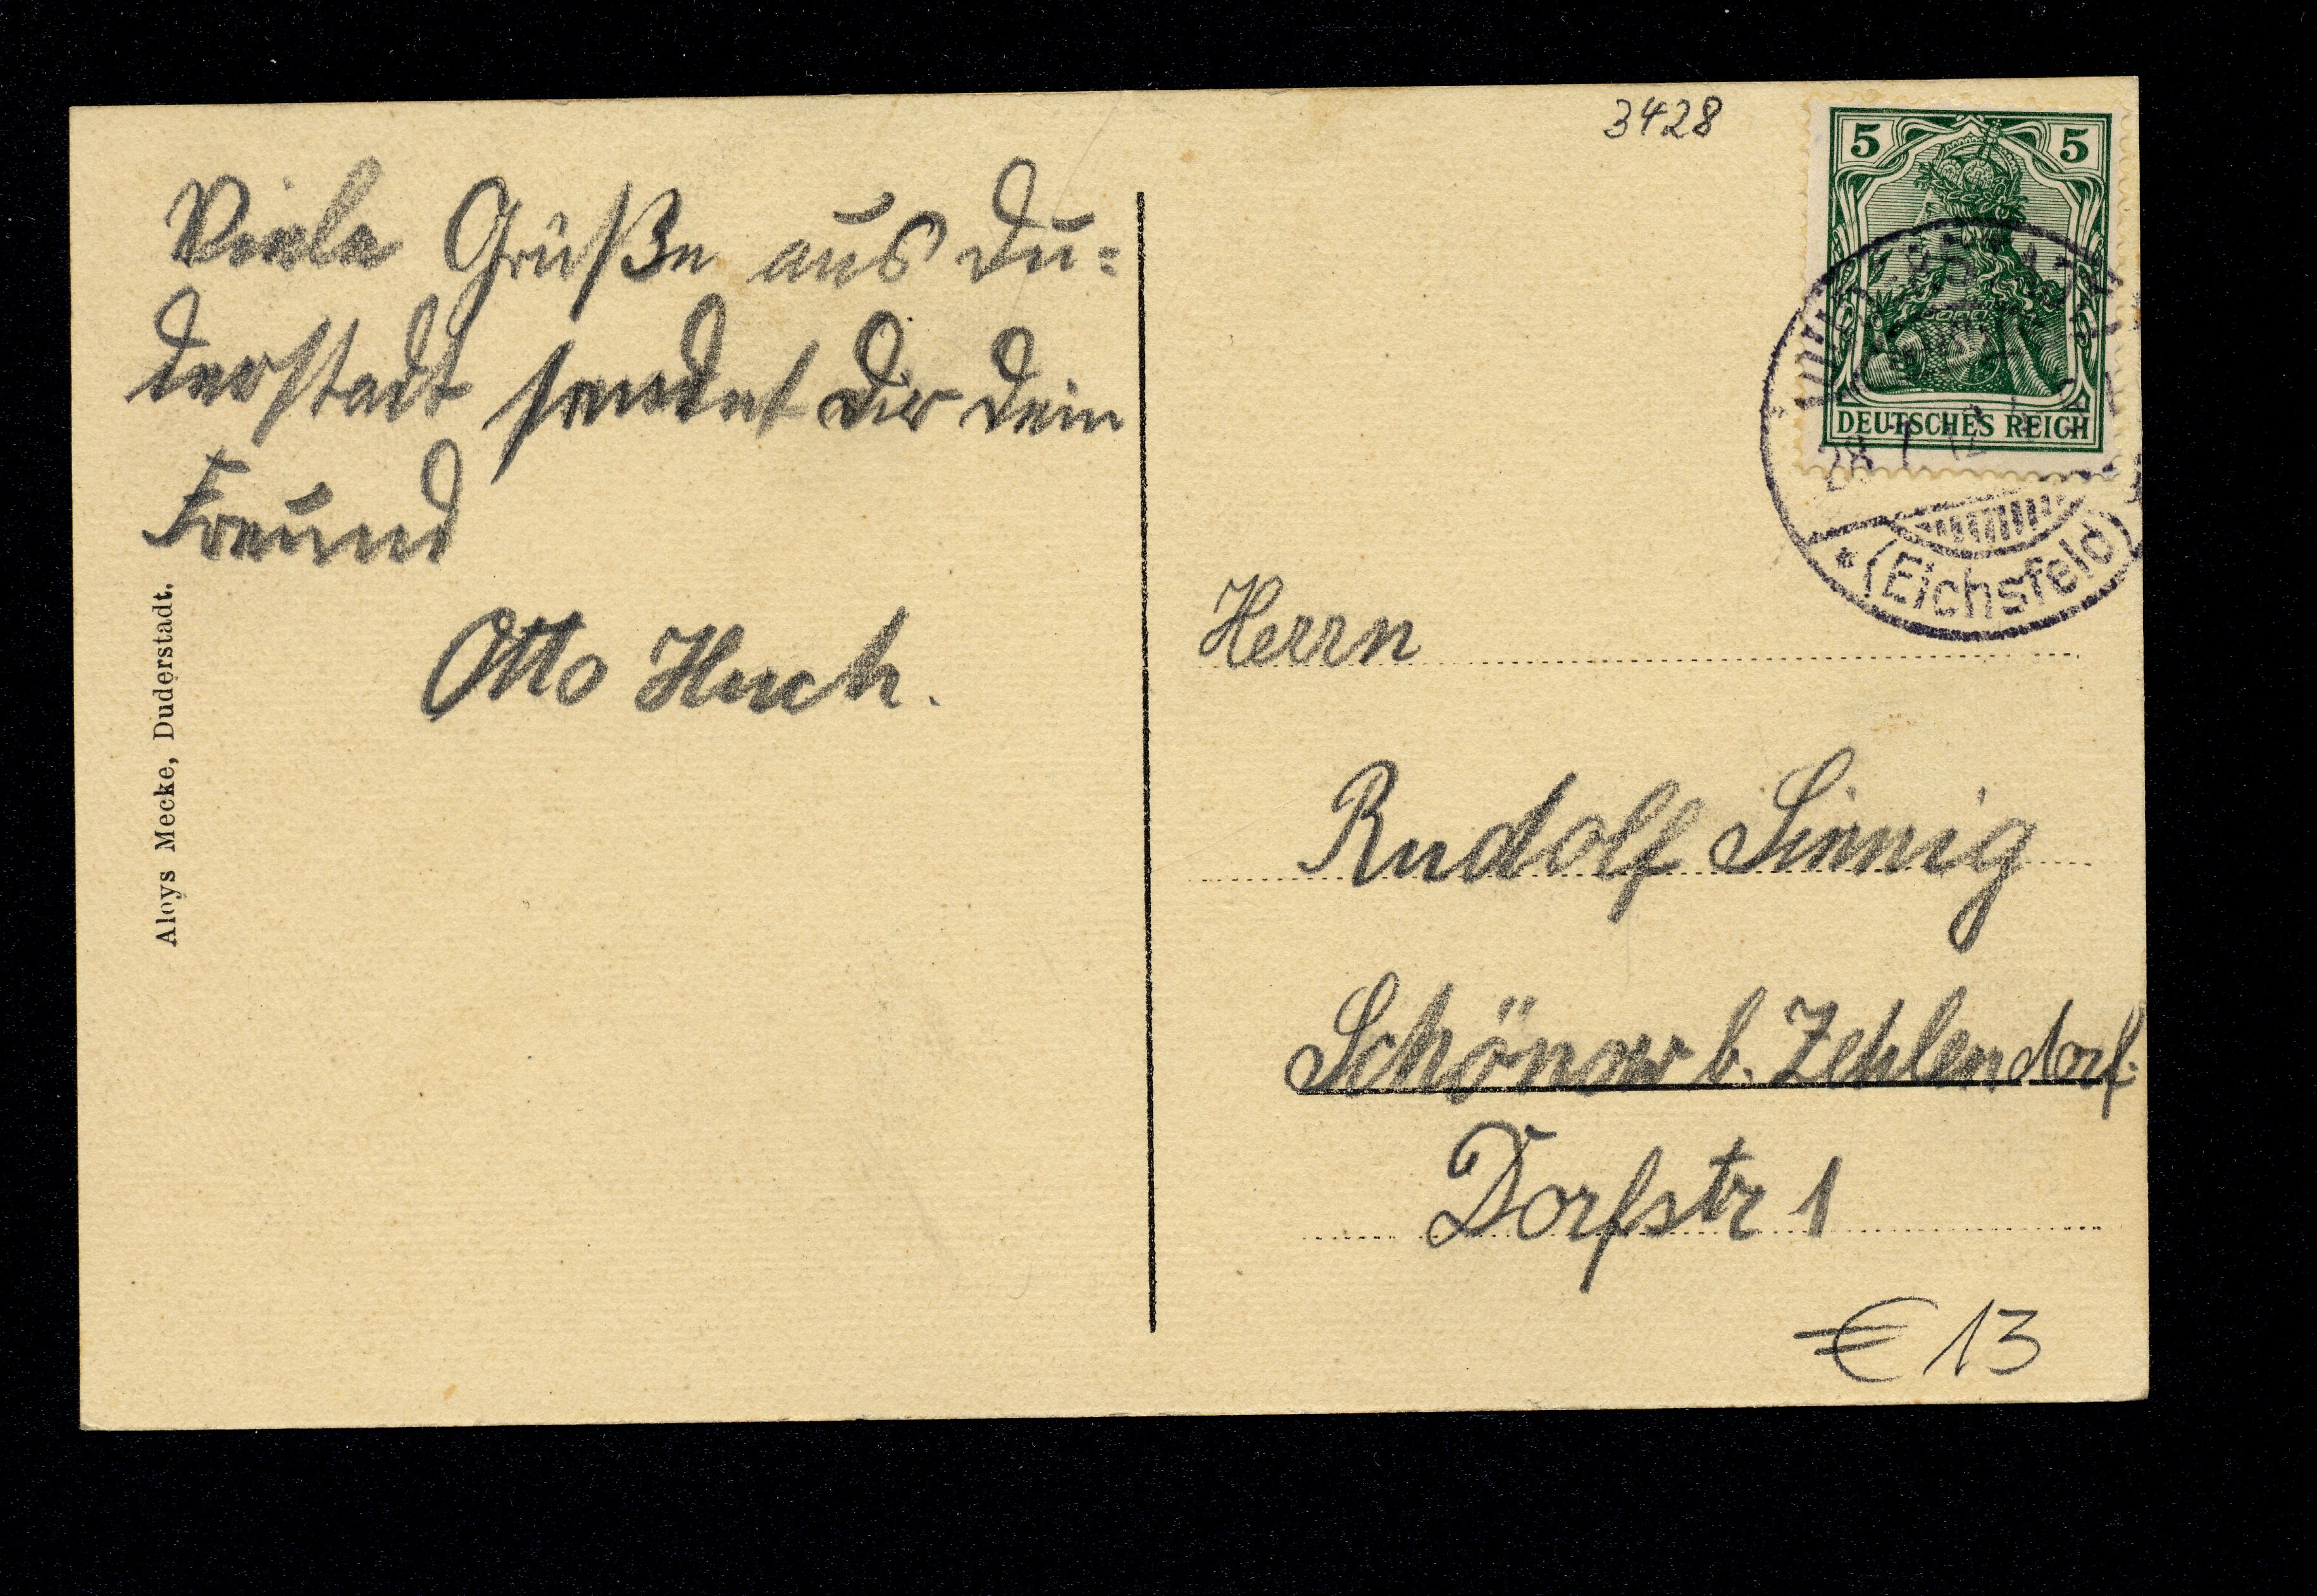 3428
5 5
DEUTSCHES REICH
28 7 12
* (Eichsfeld)
Viele Grüße aus Du=
derstadt sendet dir dein
Freund
Otto Huch.
Aloys Mecke, Duderstadt.
Herrn
Rudolf Sinnig
Schönow b. Zehlendorf.
Dorfstr 1
€ 13